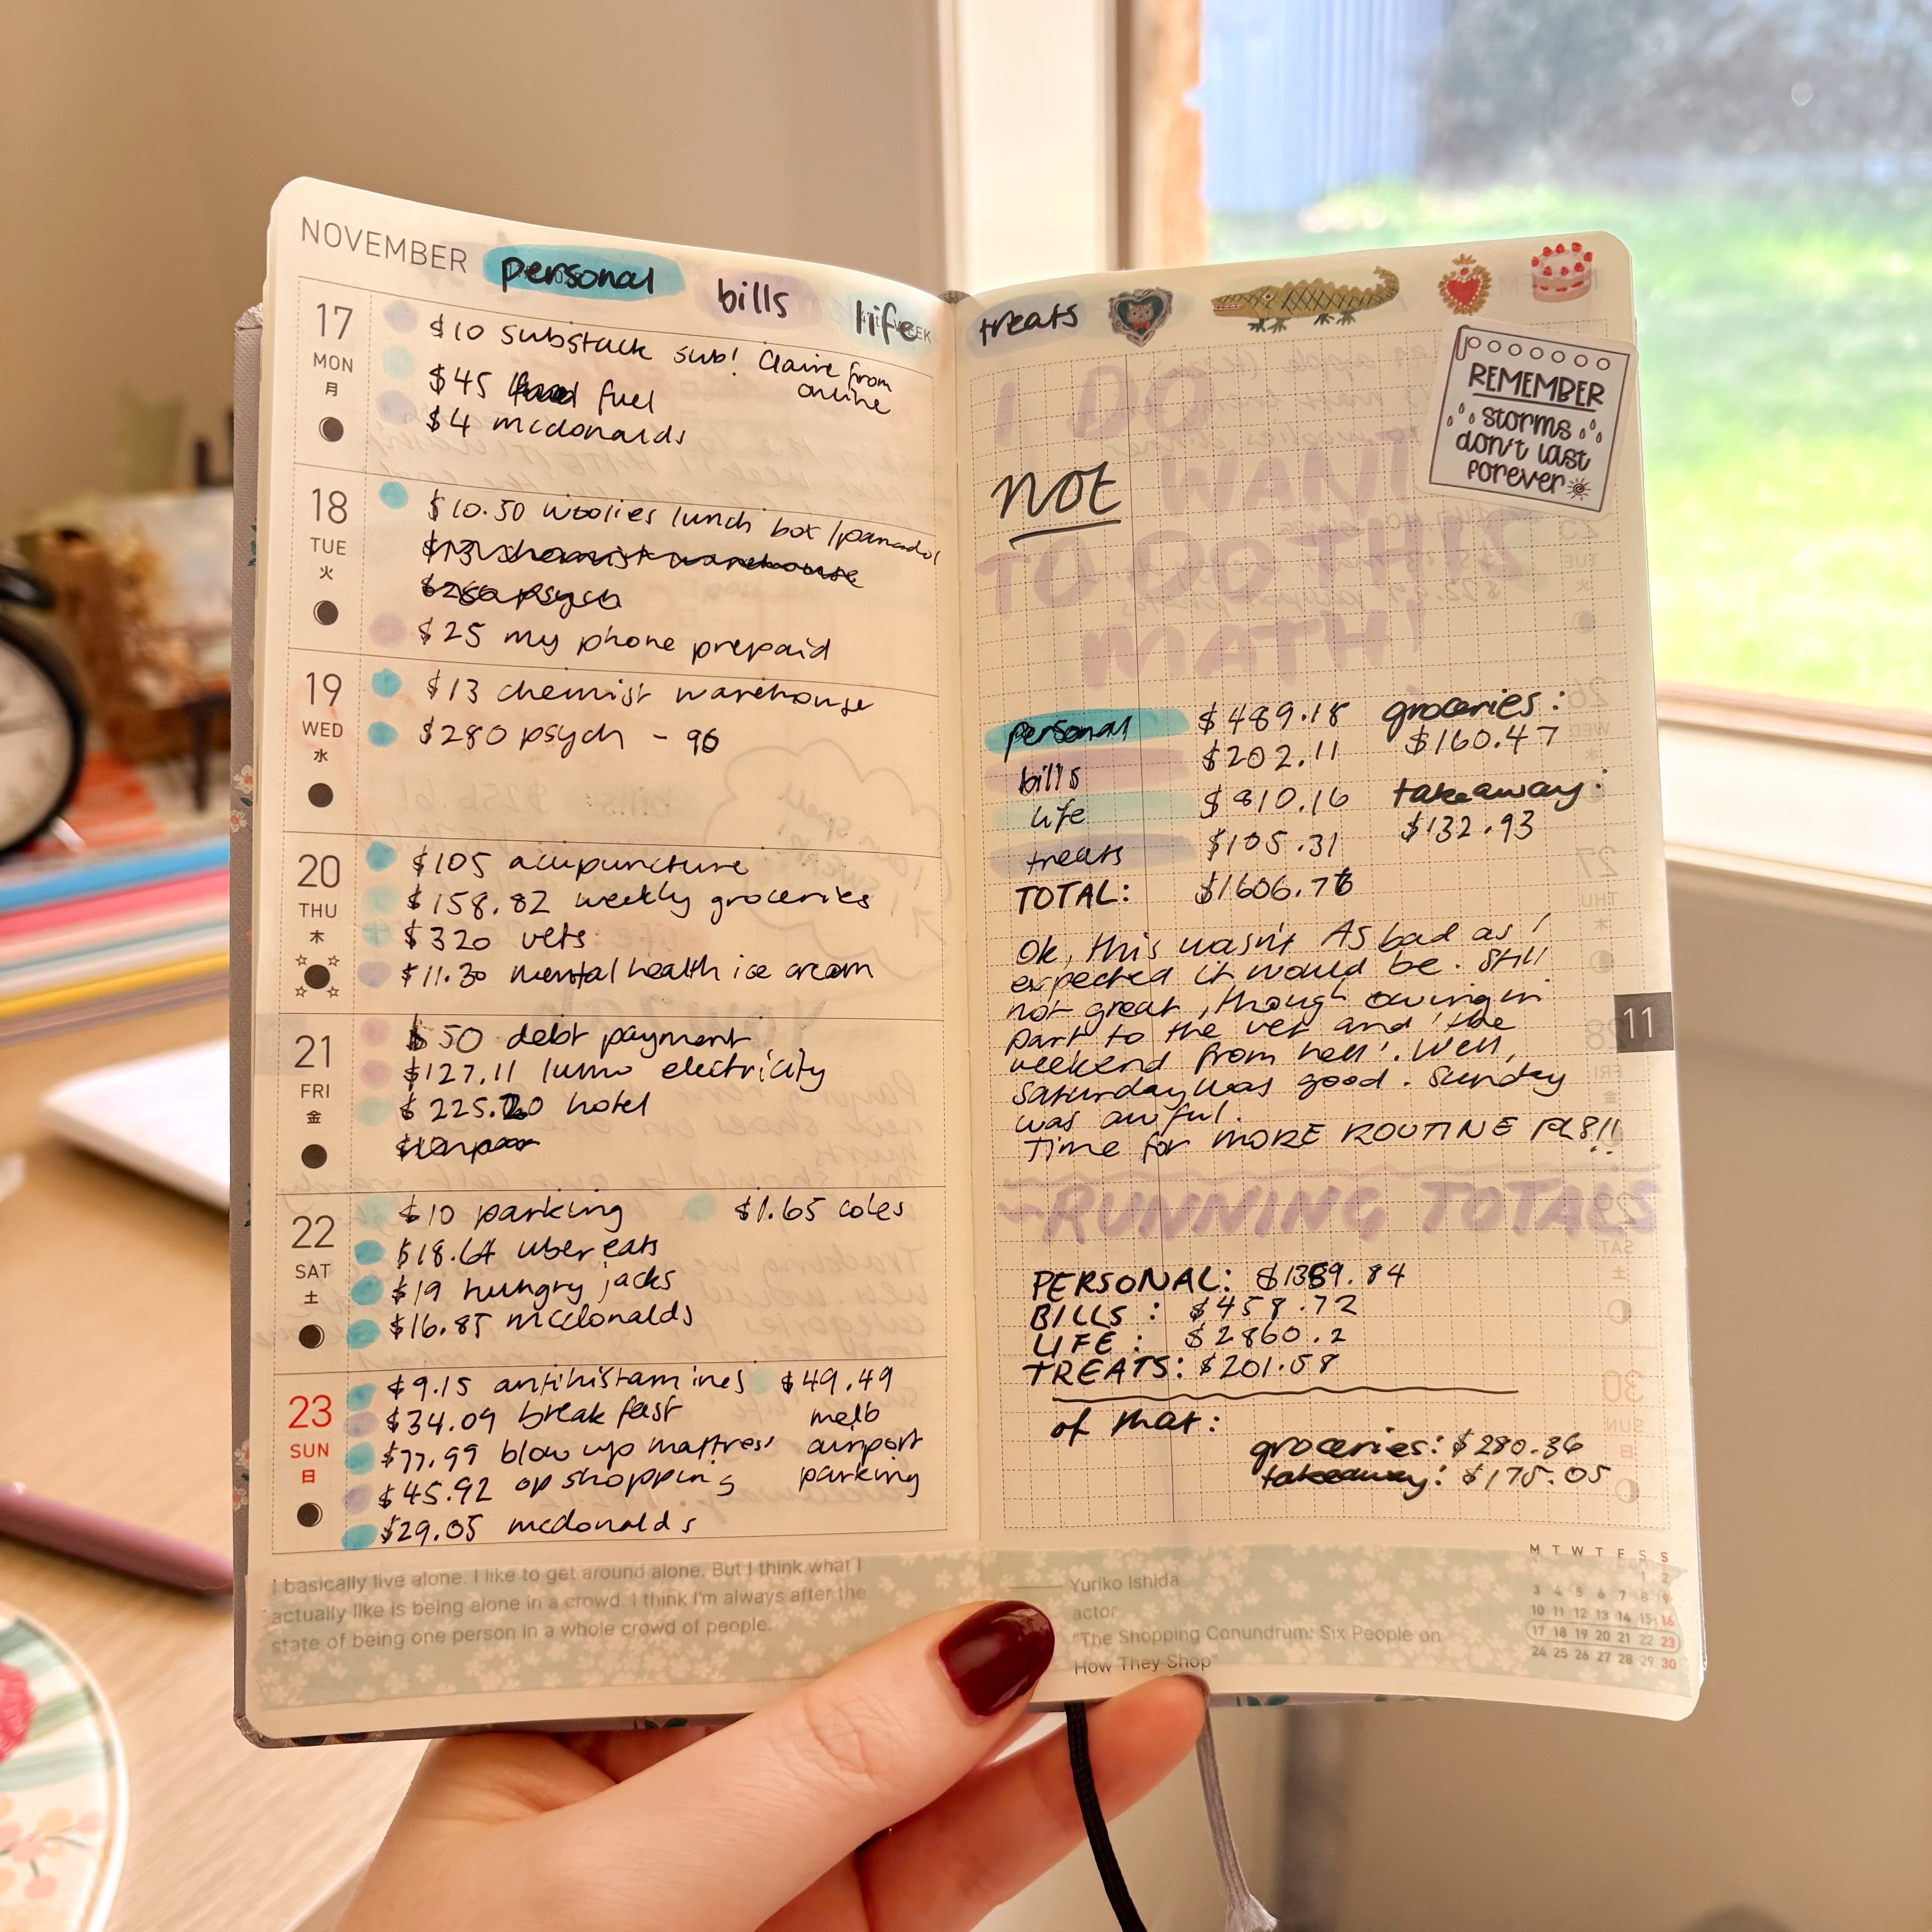 NOVEMBER
personal
bills
life
17
MON
月
$10 substack sub! Claire from
online
$45 fuel
$4 mcdonalds
18
TUE
火
$10.50 woolies lunch box / panadol
$13 chemist warehouse
$280 psych
$25 my phone prepaid
19
WED
水
$13 chemist warehouse
$280 psych - 96
20
THU
木
$105 acupuncture
$158.82 weekly groceries
$320 vets
$11.30 mental health ice cream
21
FRI
金
$50 debt payment
$127.11 lumo electricity
$225.20 hotel
22
SAT
土
$10 parking
$1.65 coles
$18.64 uber eats
$19 hungry jacks
$16.85 mcdonalds
23
SUN
日
$9.15 antihistamines
$34.09 breakfast
$77.99 blow up mattress
$45.92 op shopping
$29.05 mcdonalds
$49.49
melb
airport
parking
I basically live alone. I like to get around alone. But I think what I
actually like is being alone in a crowd. I think I'm always after the
state of being one person in a whole crowd of people.
treats
REMEMBER
storms
don't last
forever
I DO
not WANT
TO DO THIS
MATH!
personal $489.18
bills $202.11
life $810.16
treats $105.31
TOTAL: $1606.76
groceries:
$160.47
takeaway:
$132.93
Ok, this wasn't As bad as I
expected it would be. Still
not great, though owing in
part to the vet and 'the
weekend from hell'. Well,
Saturday was good. Sunday
was awful.
Time for MORE ROUTINE PLS!!
11
RUNNING TOTALS
PERSONAL: $1359.84
BILLS: $458.72
LIFE: $2860.2
TREATS: $201.58
of that:
groceries: $280.36
takeaway: $175.05
Yuriko Ishida
actor
"The Shopping Conundrum: Six People on
How They Shop"
M T W T F S S
1 2
3 4 5 6 7 8 9
10 11 12 13 14 15 16
17 18 19 20 21 22 23
24 25 26 27 28 29 30